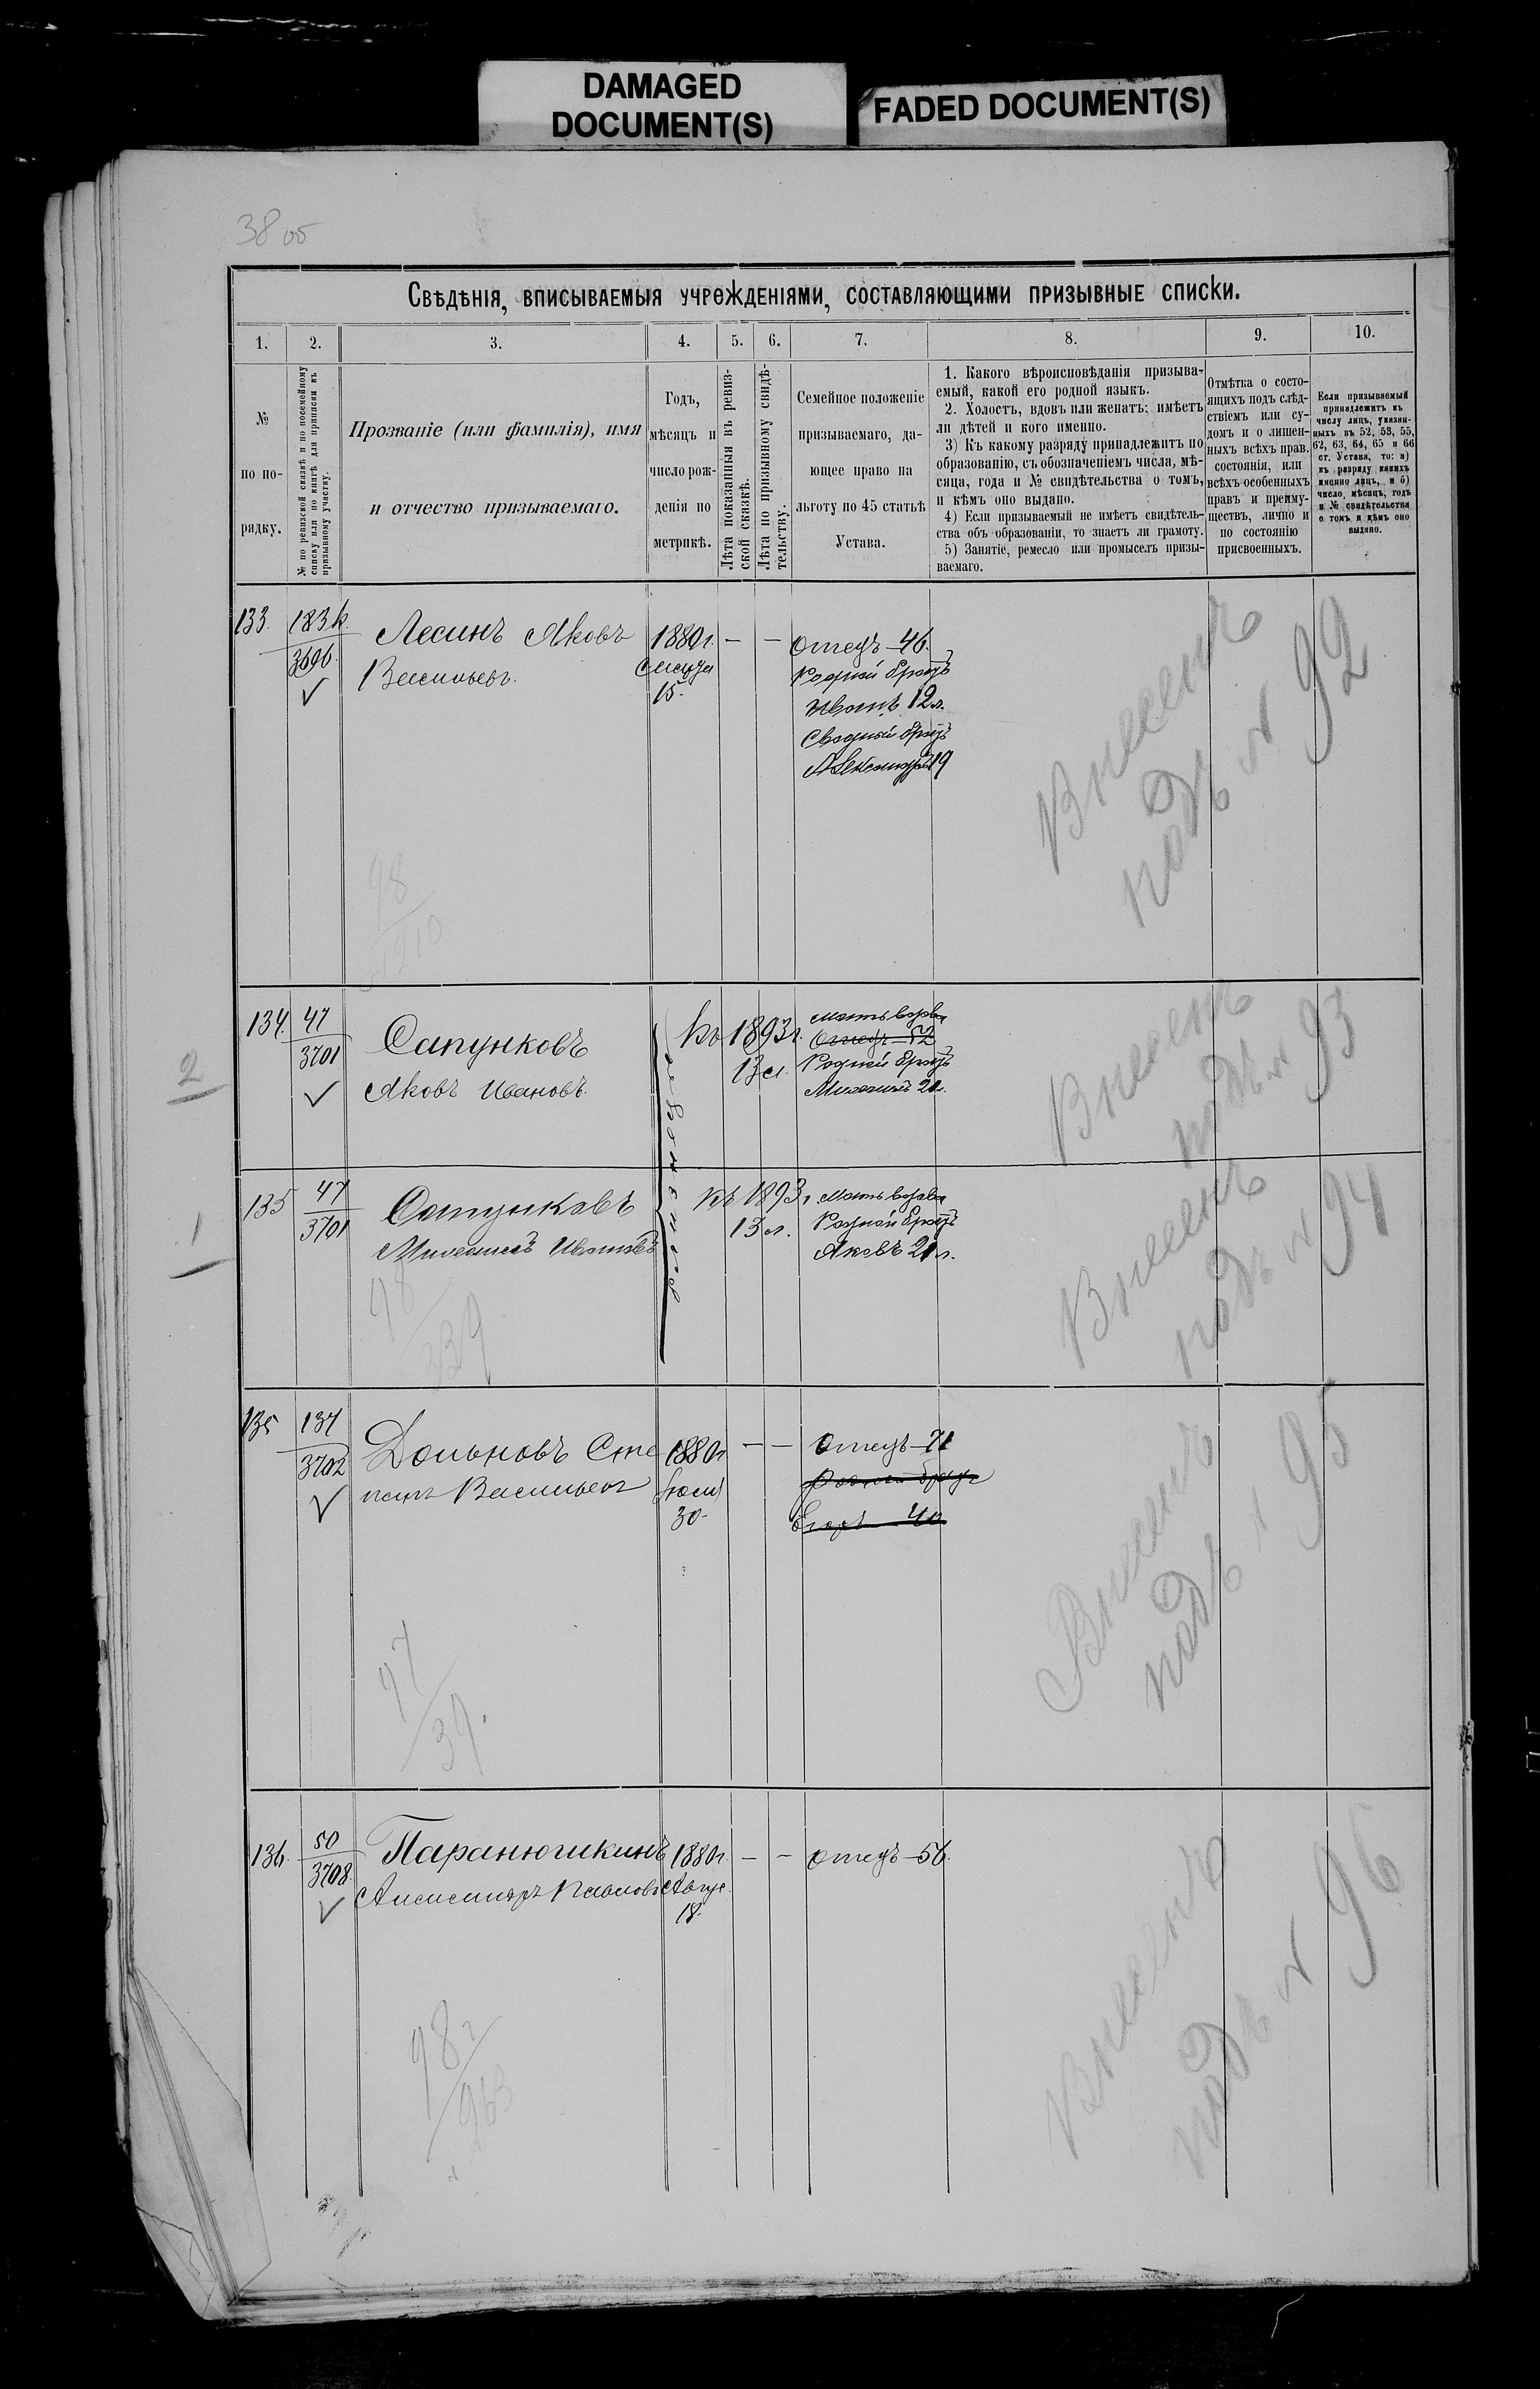 DAMAGED
DOCUMENT(S)
FADED DOCUMENT(S)
38 об
Свѣдѣнія, вписываемыя учрежденіями, составляющими призывные списки.
1.
2.
3.
4.
5.
6.
7.
8.
9.
10.
№
по по-
рядку.
№ по ревизской сказкѣ и по посемейному
списку или по книгѣ для приписки къ
призывному участку.
Прозваніе (или фамилія), имя
и отчество призываемаго.
Годъ,
мѣсяцъ и
число рож-
денія по
метрикѣ.
Лѣта показанныя въ ревиз-
ской сказкѣ.
Лѣта по призывному свидѣ-
тельству.
Семейное положеніе
призываемаго, да-
ющее право на
льготу по 45 статьѣ
Устава.
1. Какого вѣроисповѣданія призыва-
емый, какой его родной языкъ.
2. Холостъ, вдовъ или женатъ; имѣетъ
ли дѣтей и кого именно.
3) Къ какому разряду принадлежитъ по
образованію, съ обозначеніемъ числа, мѣ-
сяца, года и № свидѣтельства о томъ,
и кѣмъ оно выдано.
4) Если призываемый не имѣетъ свидѣтель-
ства объ образованіи, то знаетъ ли грамоту.
5) Занятіе, ремесло или промыселъ призы-
ваемаго.
Отмѣтка о состо-
ящихъ подъ слѣд-
ствіемъ или су-
домъ и о лишен-
ныхъ всѣхъ прав.
состоянія, или
всѣхъ особенныхъ
правъ и преиму-
ществъ, лично и
по состоянію
присвоенныхъ.
Если призываемый
принадлежитъ къ
числу лицъ, указан-
ныхъ въ 52, 53, 55,
62, 63, 64, 65 и 66
ст. Устава, то: а)
къ разряду какихъ
именно лицъ, и б)
число, мѣсяцъ, годъ
и № свидѣтельства
о томъ и кѣмъ оно
выдано.
133.
3696.
Лесинъ Яковъ
Васильевъ.
1880г.
15.
— —
отецъ—46.
Родной братъ
Иванъ 12л.
Сводный братъ
Александръ 19
Внесенъ
подъ № 92
98
210
2
134.
47
3701
Сапунковъ
Яковъ Ивановъ.
Къ 1893г.
13 л.
мать вдова
Отецъ—52
Родной братъ
Михаилъ 21л.
Внесенъ
подъ № 93
1
135
47
3701
Сапунковъ
Михаилъ Ивановъ
къ 1893г
13 л.
мать вдова
Родной братъ
Яковъ 21л.
Внесенъ
подъ № 94
98
339
135
137
3702
Сте
панъ Васильевъ
1880г
Іюля
30.
— —
отецъ—71
Родной братъ
Егоръ—40
Внесенъ
подъ № 95
97
39.
136.
50
3708.
Александръ Павловъ
1880г.
Авгус.
18.
— —
отецъ—56.
Внесенъ
подъ № 96
98
263